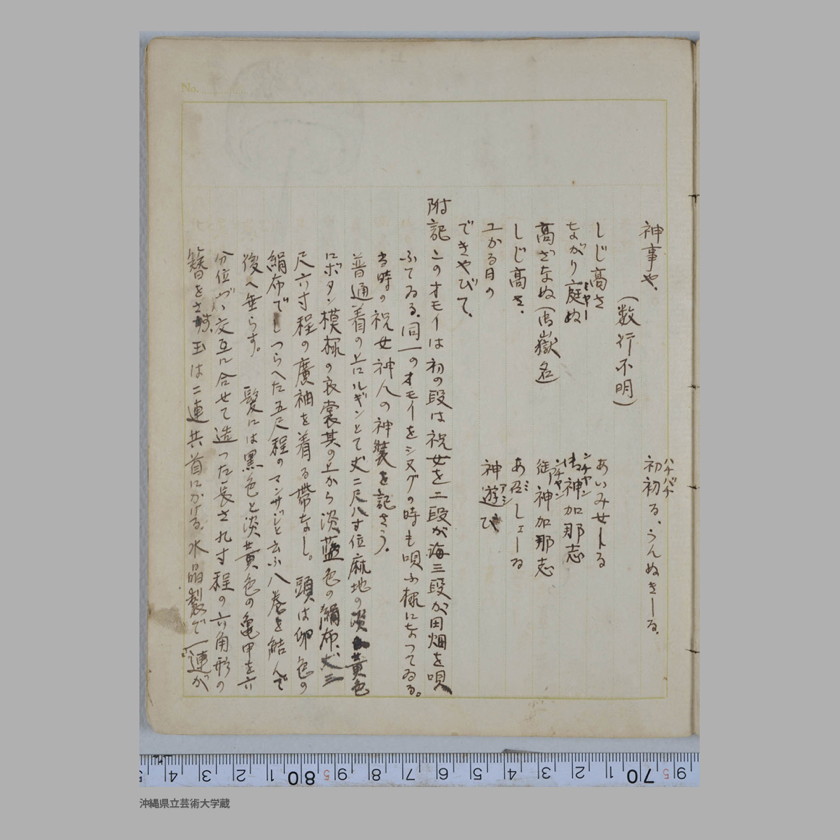 神事や、　初初る、うんぬきーる、
ハチバチ
（数行不明）
しじ高さ　あいみせーる
ながり庭ぬ　御神加那志
ミヤー　シチャン
高ざなぬ（高嶽名）　御神加那志
しじ高さ、　あみしょーる
ユかる日の　神遊び
アシ
できやびて、
附記　このオモイーは初の段は祝女を二段が海三段が田畑を唄
ふてゐる、同一のオモイーをシヌグの時も唄ふ様になつてゐる。
当時の祝女神人の神装を記さう。
普通着の上にルギンとて丈二尺八寸位麻地の淡黄色
にボタン模様の衣裳其の上から淡藍色の絹布、丈三
尺六寸程の廣袖を着る帯なし。頭は卵色の
絹布でつらへた五尺程のマンサジと云ふ八巻を結んで
後へ垂らす。　髪には黒色と淡黄色の亀甲を六
分位づゝ交互に合せて造つた長さ九寸程の六角形の
簪をさす、玉は二連共首にかける、水晶製で一連が
沖縄県立芸術大学蔵